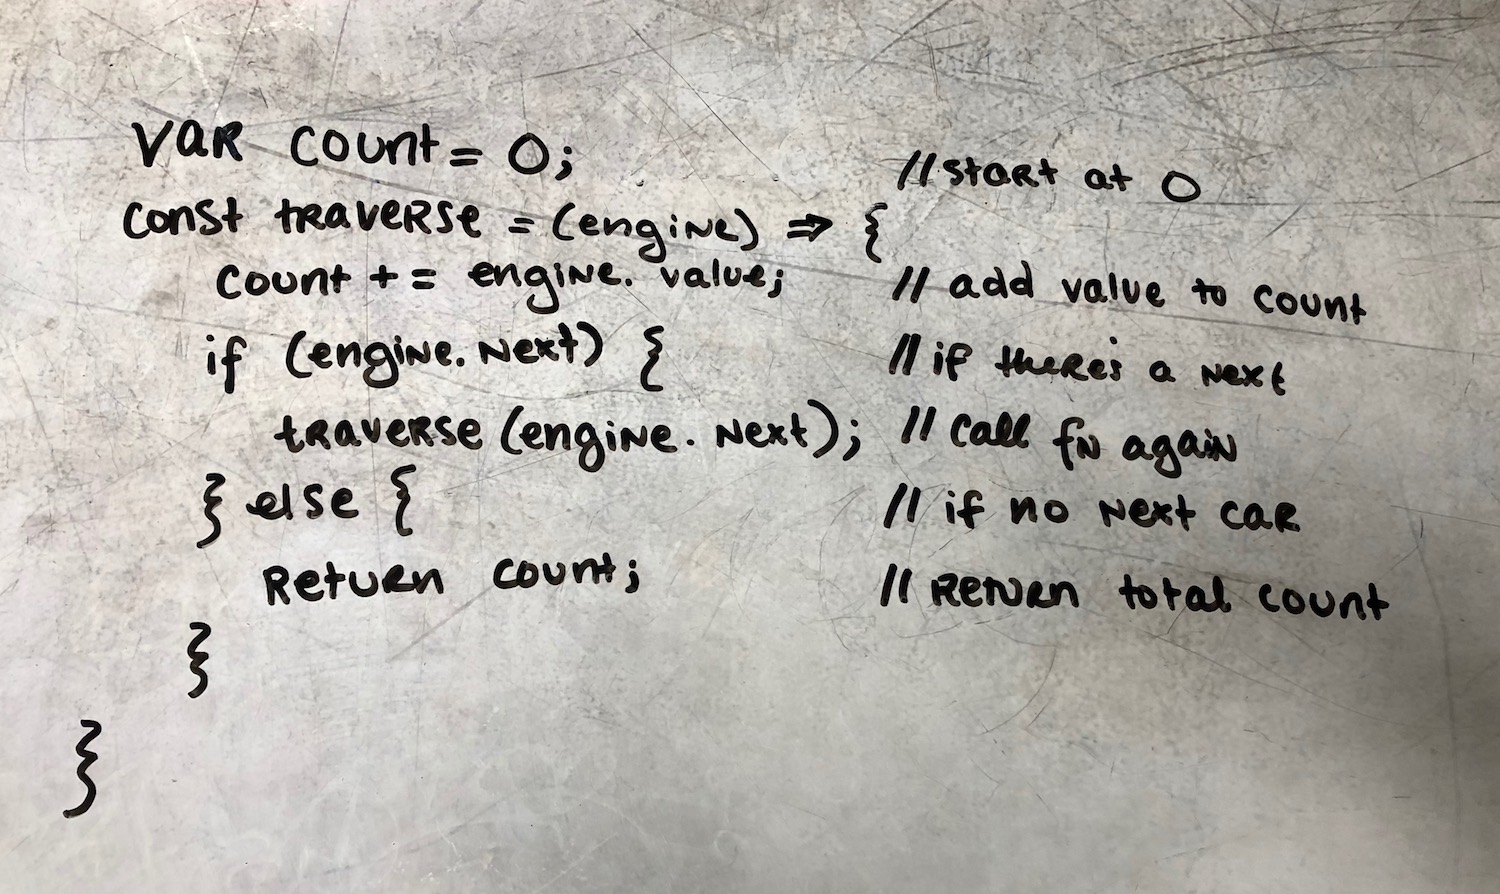 var count = 0; //start at 0
const traverse = (engine) => {
count += engine.value; // add value to count
if (engine.next) { // if there's a next
traverse (engine.next); // call fn again
} else { // if no next car
return count; // return total count
}
}